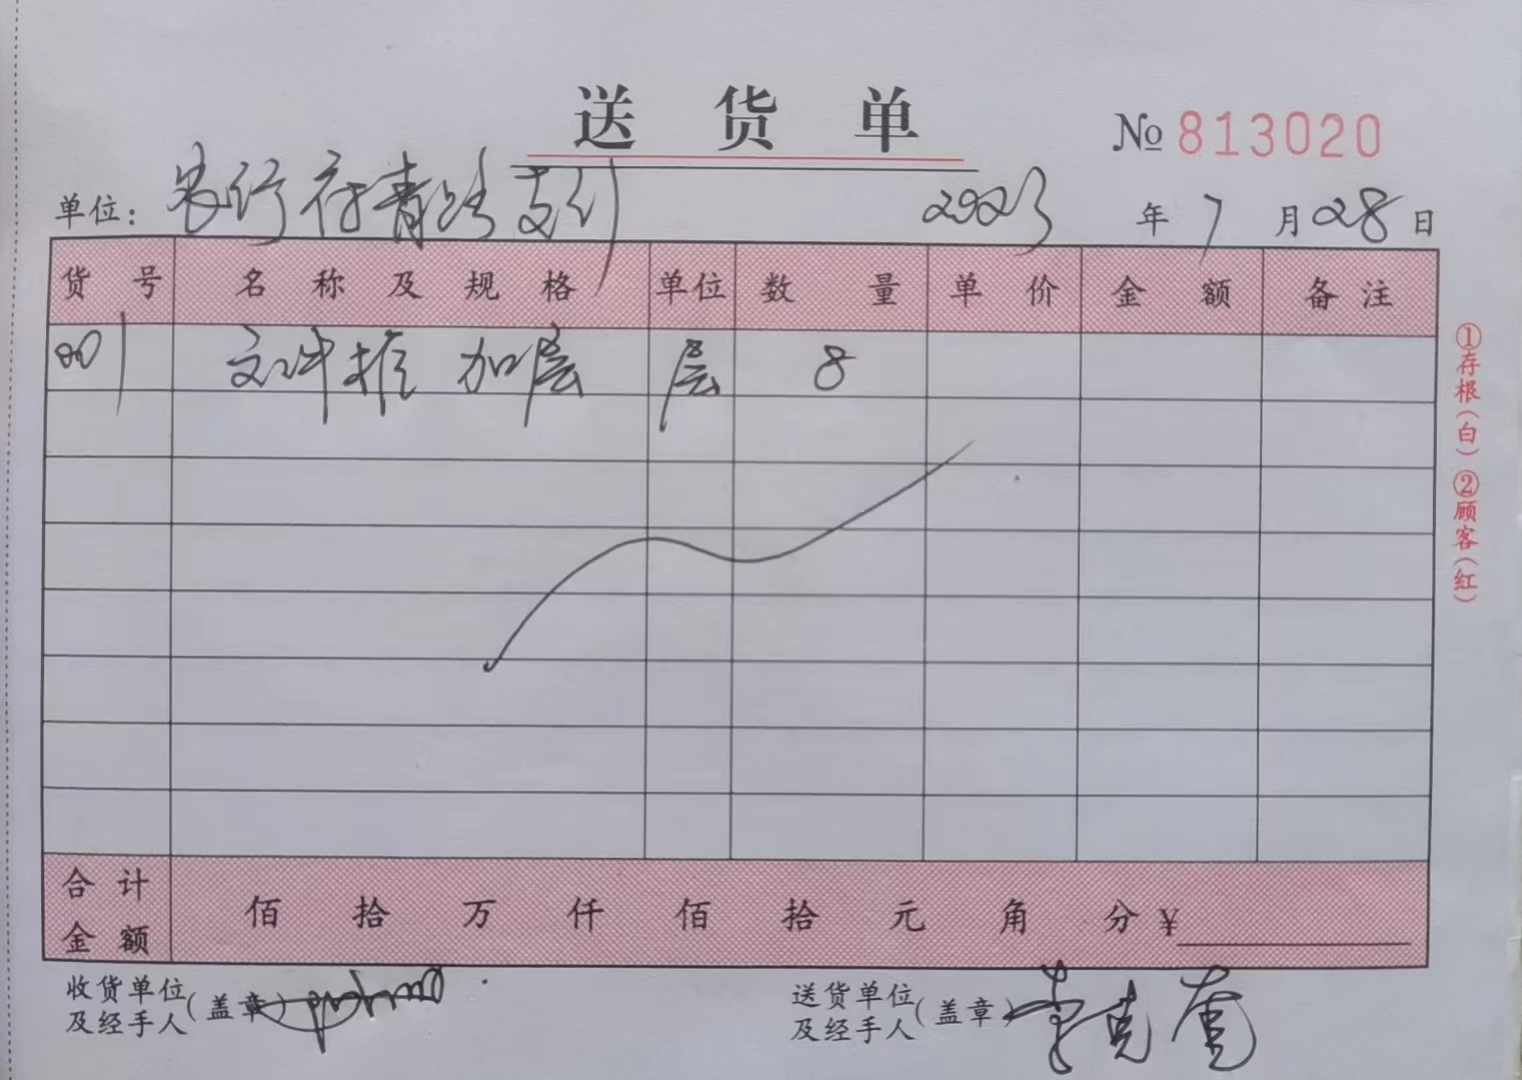 送货单
№ 813020
单位: 农行存青路支行 2023年7月28日
货号 名称及规格 单位 数量 单价 金额 备注
001 文件柜 加层 层 8
合计金额 佰 拾 万 仟 佰 拾 元 角 分 ¥
收货单位及经手人(盖章)
送货单位及经手人(盖章) 李克
①存根(白) ②顾客(红)